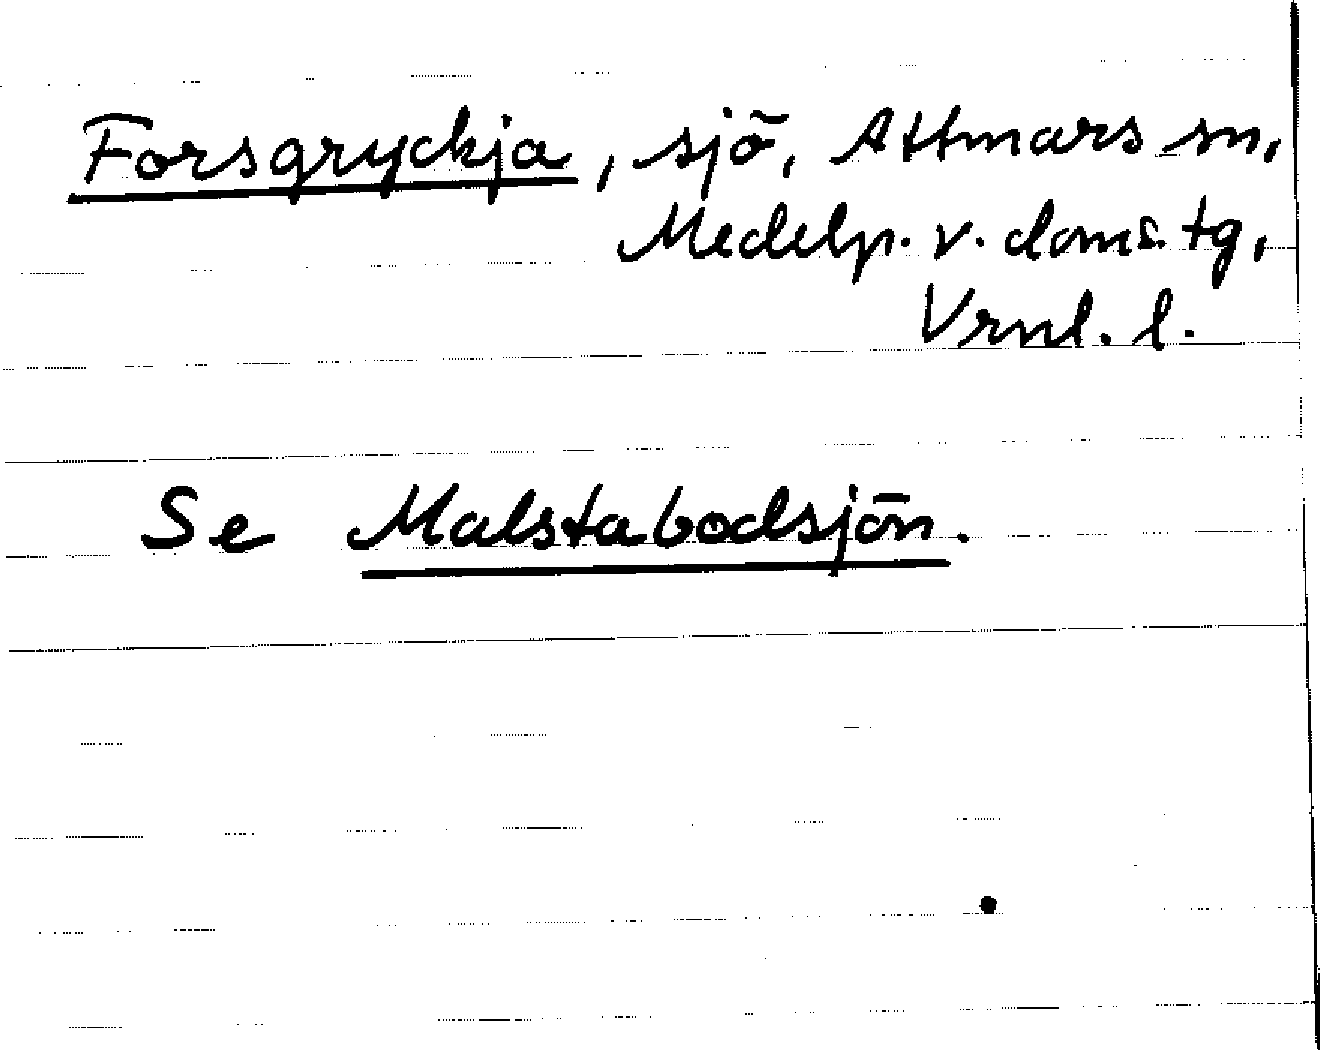 Forsgryckja, sjö, Attmars sn,
Medelp. v. doms. tg,
Vrnl. l.
Se Malstabodsjön.